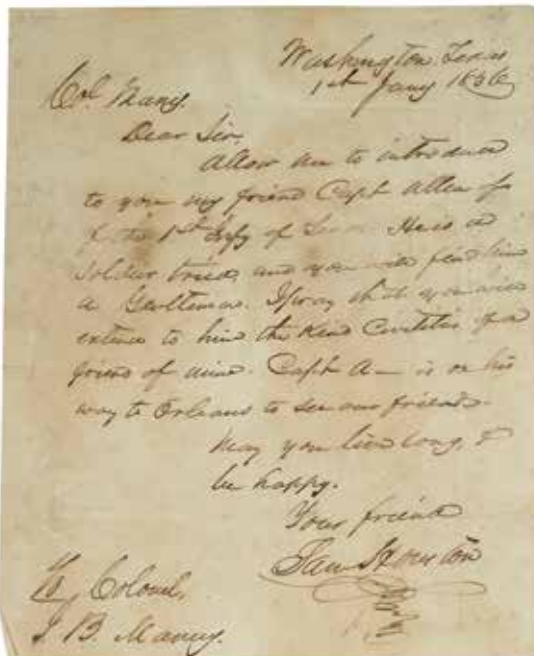 Washington, Texas
1st Jany 1836
Col. Many.
Dear Sir,
Allow me to introduce
to you my friend Capt Allen of
the 1st of He is a
Soldier tried, and you will find him
a Gentleman. I pray that you will
extend to him the kind Civilities of a
friend of mine. Capt A— is on his
way to Orleans to see our friends.
May you live long, &
be happy.
Your friend
Sam Houston
To Colonel,
J B. Many.